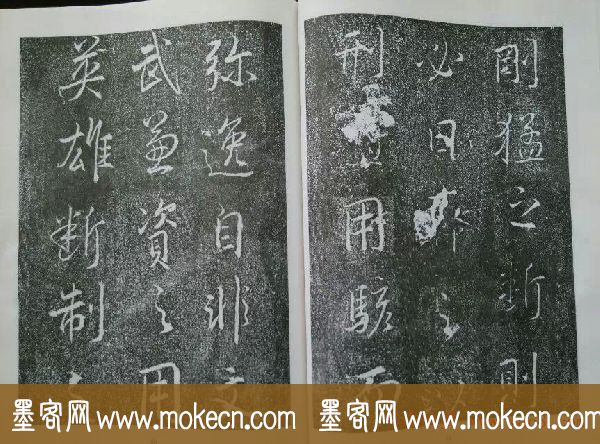 剛猛之断則
必日非之
刑用駭而
弥逸自非文
武兼資之用
英雄断制
墨客网 www.mokecn.com 墨客网 www.mokecn.com